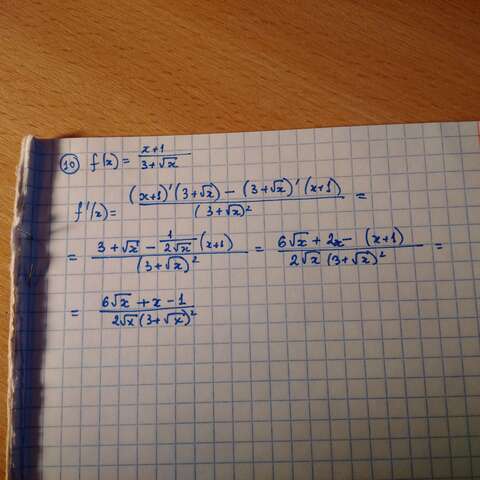 10 f(x) = (x+1)/(3+√x)
f'(x) = ((x+1)'(3+√x) − (3+√x)'(x+1))/(3+√x)² =
= (3+√x − 1/(2√x) (x+1))/(3+√x)² = (6√x + 2x − (x+1))/(2√x (3+√x)²) =
= (6√x + x − 1)/(2√x (3+√x)²)